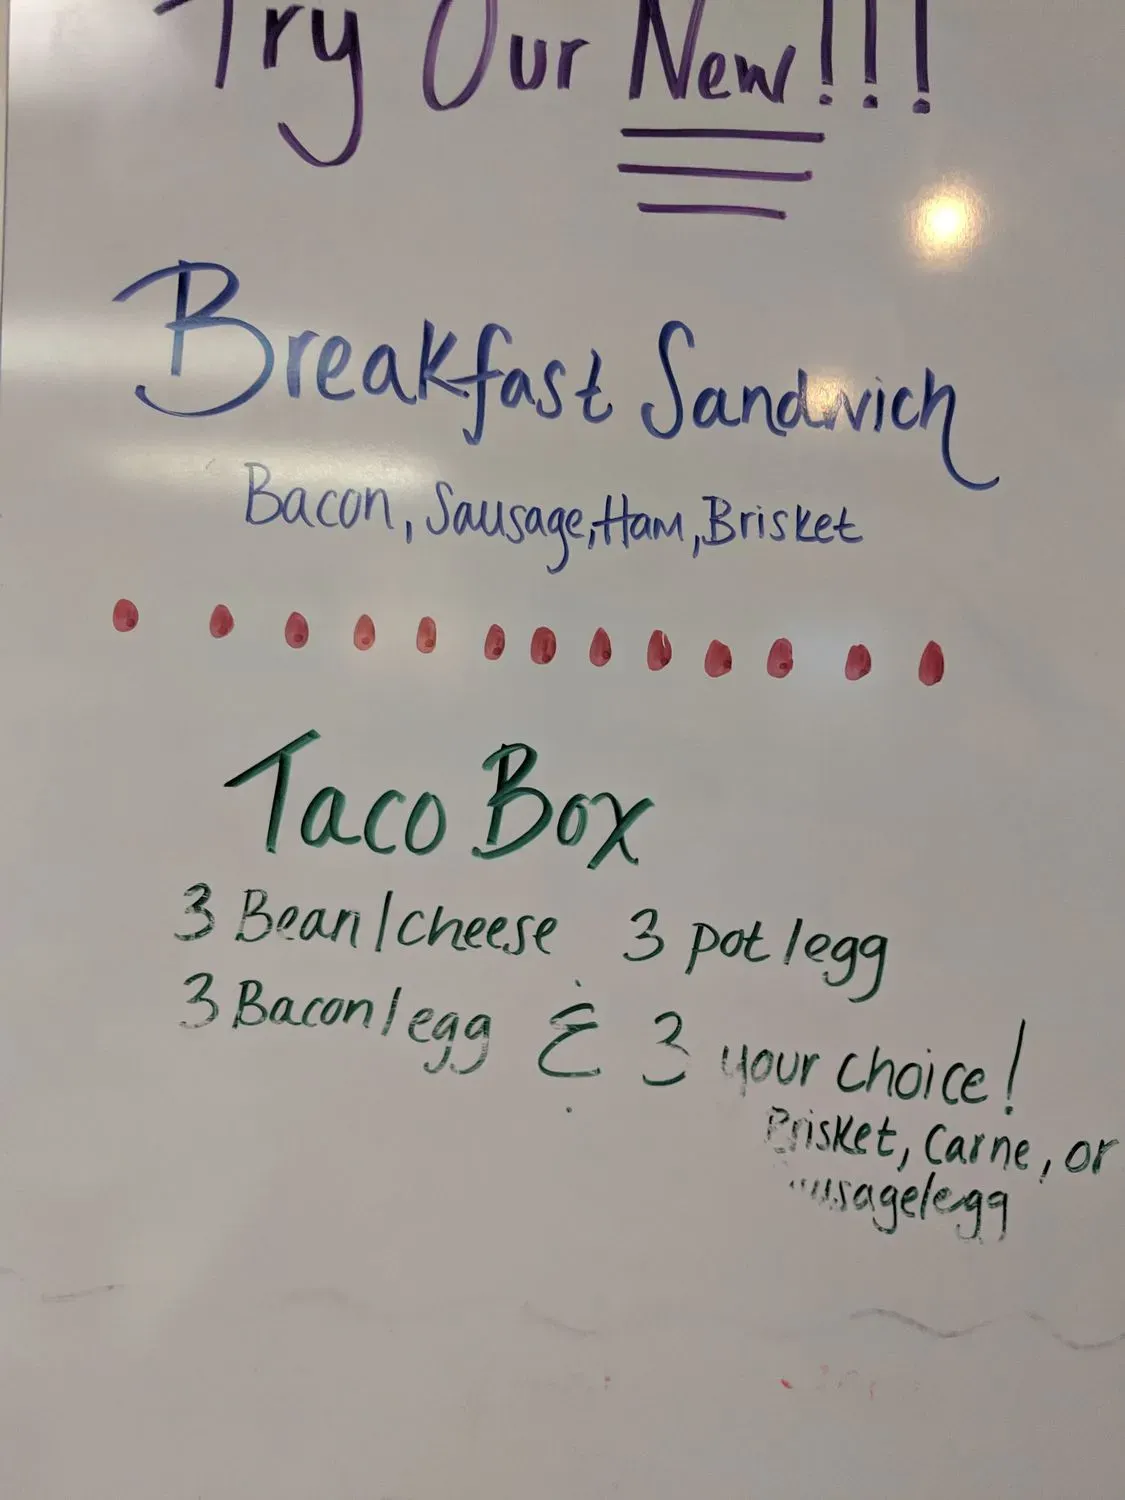 Try Our New!!!
Breakfast Sandwich
Bacon, Sausage, Ham, Brisket
Taco Box
3 Bean/cheese 3 pot/egg
3 Bacon/egg & 3 your choice!
Brisket, Carne, or
sausage/egg